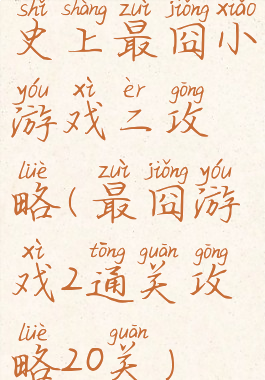 shǐ shàng zuì jiǒng xiǎo
史上最囧小
yóu xì èr gōng
游戏二攻
lüè zuì jiǒng yóu
略(最囧游
xì tōng guān gōng
戏2通关攻
lüè guān
略20关)